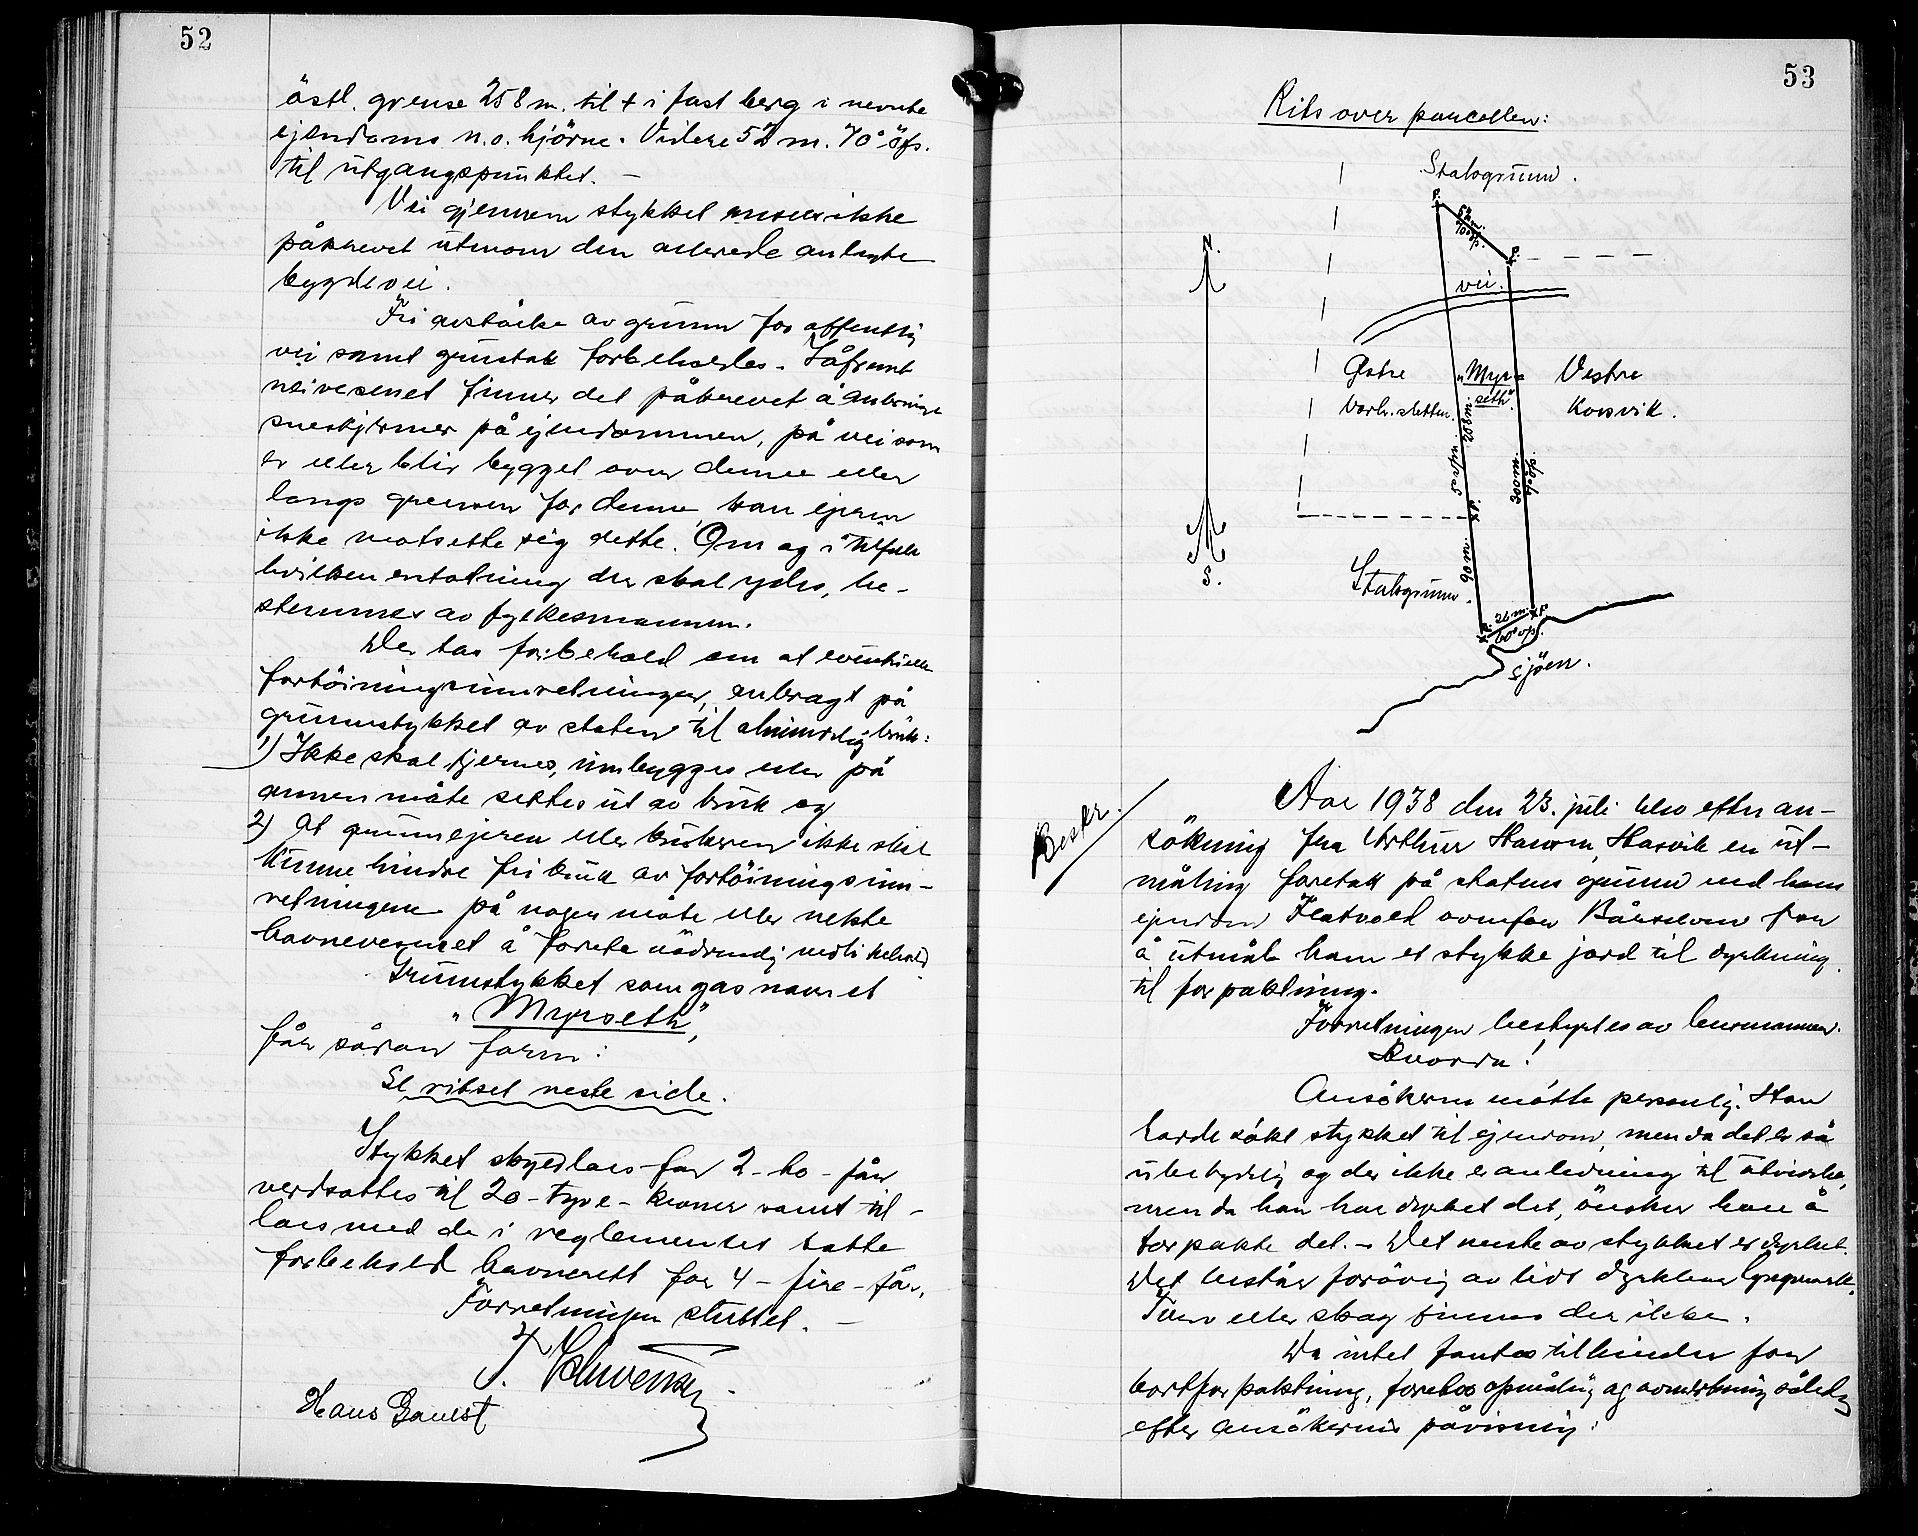 52
östl. grense 258 m. til + i fast berg i nevnte
ejendoms n.o. hjörne. Videre 52 m. 70° öfs.
til utgangspunktet. —
Vei gjennem stykket ansees ikke
påkrevet utenom den allerede anlagte
bygdevei.
Fri avståelse av grunn for offentlig
vei samt grustak forbeholdes. Såfremt
veivesenet finner det påkrevet å anbringe
sneskjermer på ejendommen, på vei som
er eller blir bygget over denne eller
langs grensen for denne kan ejeren
ikke motsette sig dette. Om og i tilfelle
hvilken erstatning der skal ydes, be-
stemmes av fylkesmannen.
Der tas forbehold om at eventuelle
fortöiningsinnretninger, anbragt på
grunnstykket av staten til almindelig bruk:
1) Ikke skal fjernes, innbygges eller på
annen måte settes ut av bruk og
2) At grunnejeren eller brukeren ikke skal
kunne hindre fri bruk av fortöiningsinn-
retningene på nogen måte eller nekte
havnevesenet å foreta nödvendig vedlikehold.
Grunnstykket som gas navnet
"Myrseth",
får sådan form:
Se ritset neste side.
Stykket skyldlaes for 2 - to - öre
verdsattes til 20 - tyve - kroner samt til-
laes med de i reglementet tatte
forbehold havnerett for 4 - fire - får.
Forretningen sluttet. —
Hans Gamst
53
Rits over parcellen:
Statsgrunn.
P.
52 m.
70° öfs.
P.
N.
vei.
Östre
"Myr-
Vestre
Vorh. sletten.
seth".
Korsvik.
258 m.
300 m.
P.
90 m.
S.
Statsgrunn.
26 m.
P.
60° vfs.
sjöen.
Beskr.
Aar 1938 den 23. juli blev efter an-
sökning fra Arthur Hansen, Hasvik en ut-
måling foretatt på statens grunn ved hans
ejendom Flatvold ovenfor Bårselven for
å utmåle ham et stykke jord til dyrkning
til forpaktning.
Forretningen bestyrtes av lensmannen.
Ansökeren mötte personlig. Han
hadde sökt stykket til ejendom, men da det er så
ubetydelig og der ikke er anledning til utvidelse,
men da han har dyrket det, önsker han å
forpakte det. — Det meste av stykket er dyrket.
Det består forövrig av litt dyrkbar lyngmark.
Torv eller skog finnes der ikke.
Da intet fantes til hinder for
bortforpaktning, foretoes opmåling og avmerkning således
efter ansökerens påvisning: